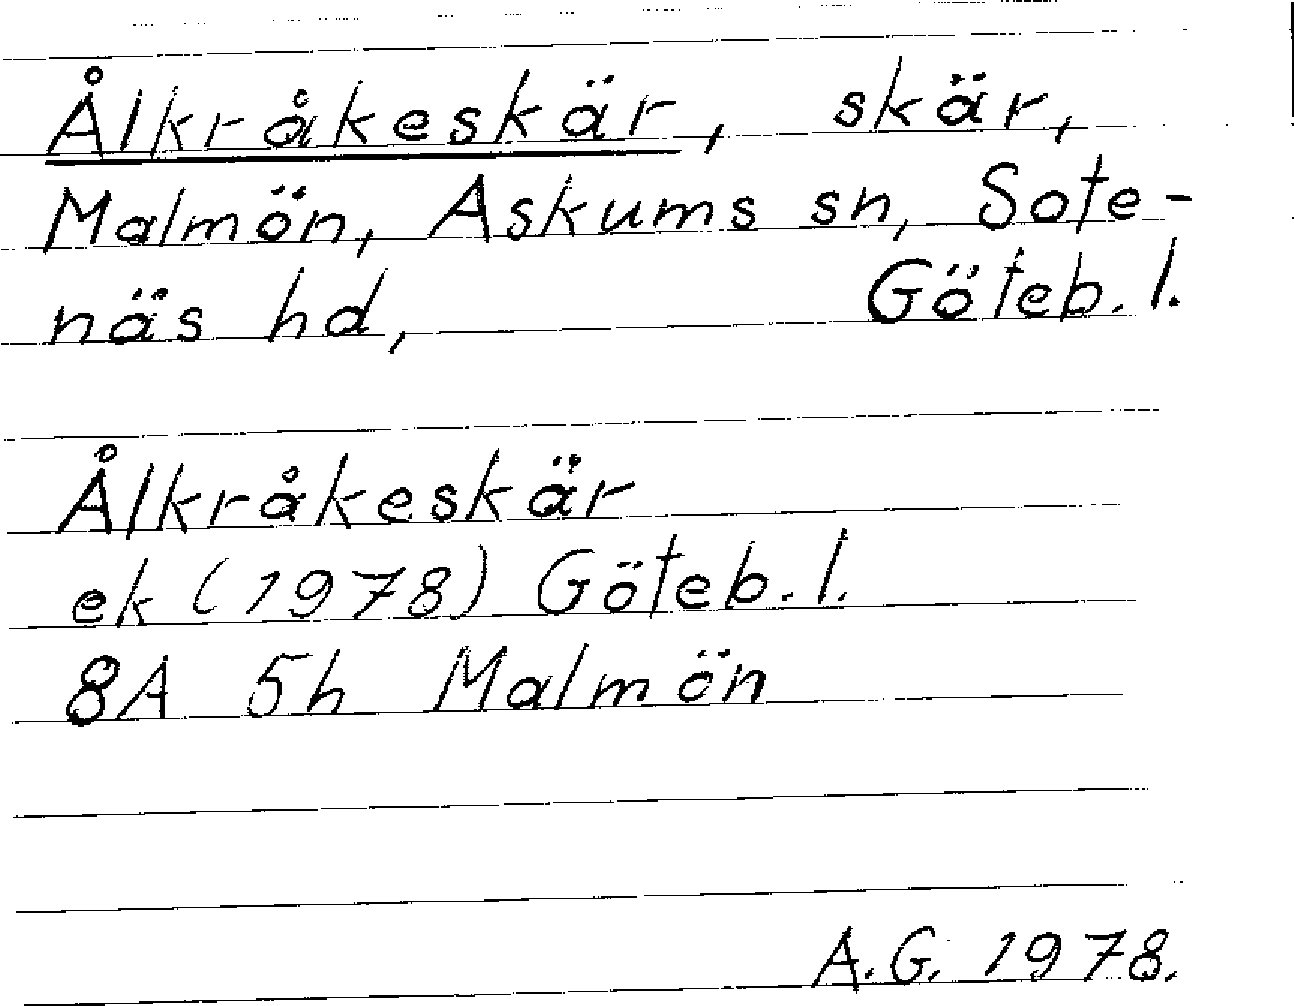 Ålkråkeskär, skär,
Malmön, Askums sn, Sote-
näs hd, Göteb. l.
Ålkråkeskär
ek (1978) Göteb. l.
8A 5h Malmön
A.G. 1978.